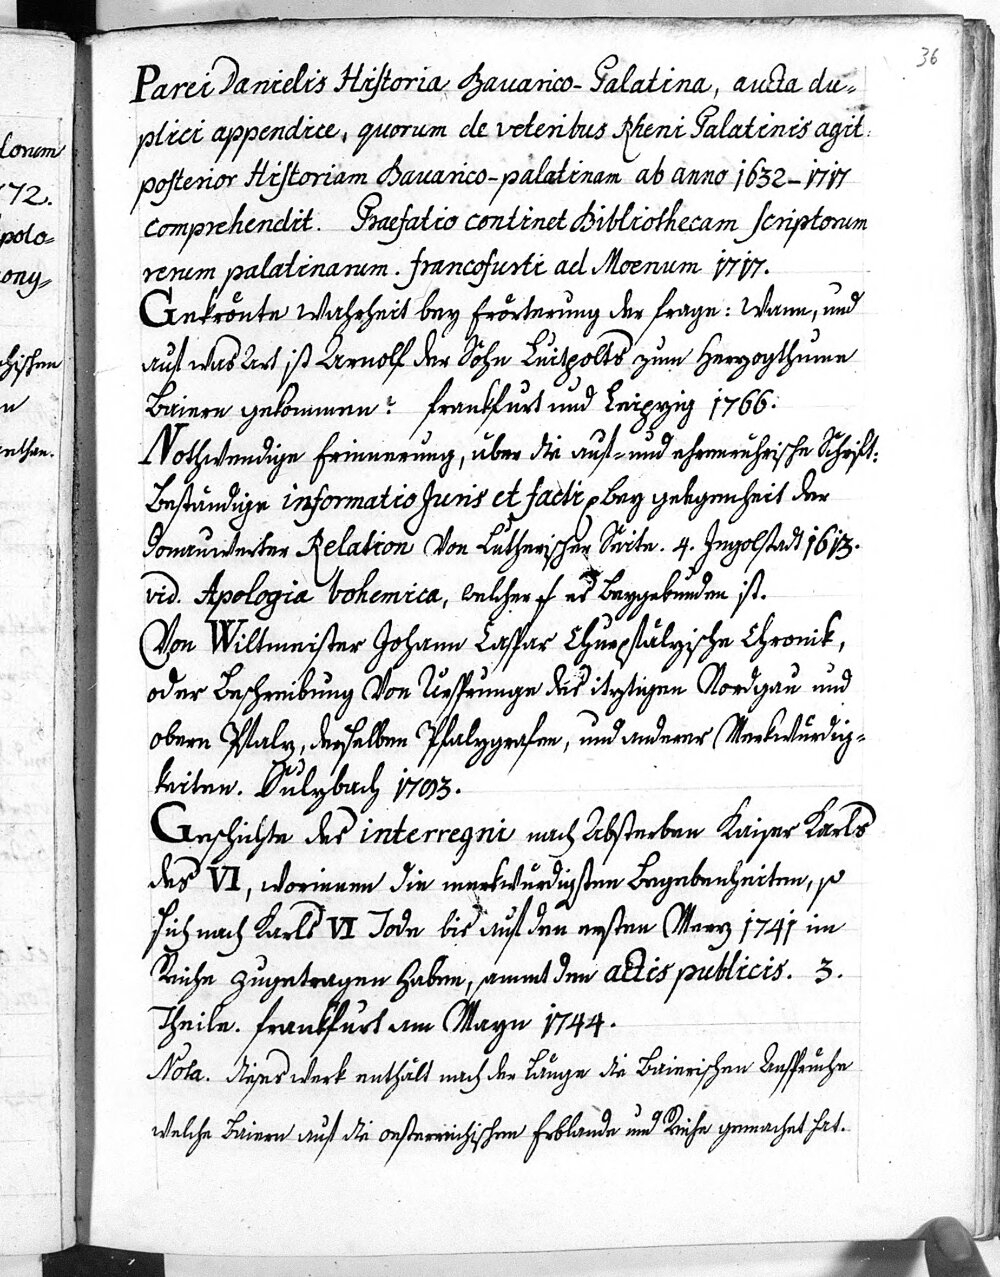 36
Parei Danielis Historia Bavarico-Palatina, aucta du-
plici appendice, quorum de veteribus Rheni Palatinis agit.
posterior Historiam Bavarico-palatinam ab anno 1632-1717
comprehendit. Praefatio continet Bibliothecam scriptorum
rerum palatinarum. francofurti ad Moenum 1717.
Gekrönte Wahrheit bey Erörterung der frage: Wann, und
auf was Art ist Arnolf der Sohn Luitpolts zum Herzogthume
Baiern gekommen? frankfurt und Leipzig 1766.
Nothwendige Erinnerung, über die auf- und ehrenrührische Schrift:
Beständige informatio Juris et facti bey gelegenheit der
Donauwerter Relation Von Lutherischer Seite. 4. Ingolstadt 1613.
vid. Apologia bohemica, welcher es beygebunden ist.
Von Wiltmeister Johann Caspar Churpfälzische Chronik,
oder Beschreibung Von Ursprunge des itztigen Nordgau und
obern Pfalz, desselben Pfalzgrafen, und anderer Merkwürdig-
keiten. Sulzbach 1783.
Geschichte des interregni nach Absterben Kaiser Karls
des VI, worinnen die merkwürdigsten Begebenheiten, so
sich nach Karls VI Tode bis auf den ersten Merz 1741 im
Reiche zugetragen haben, sammt den actis publicis. 3.
Theile. frankfurt am Mayn 1744.
Nota. dieses werk enthält nach der Länge die Baierischen Ansprüche
welche Baiern auf die oesterreichischen Erblande und Reiche gemachet hat.
dorum
72.
polo-
ony-
chischen
n
nthan.